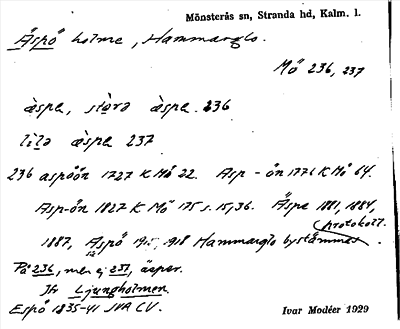 Mönsterås sn, Stranda hd, Kalm. l.
Äspö holme, Hammarglo.
Mö 236, 237
àspe, stora àspe. 236
lila àspe 237
236 aspöön 1727 K Mö 22. Asp-ön 1776 K Mö 64.
Asp-ön 1827 K Mö 175 s. 15, 36. Äspe 1881, 1884,
protokoll.
1887, Äspö 1915, 1918 Hammarglo bystämmas
På 236, men ej 237, äsper.
Jfr Ljungholmen.
Espö 1835-41 JVA CV.
Ivar Modéer 1929